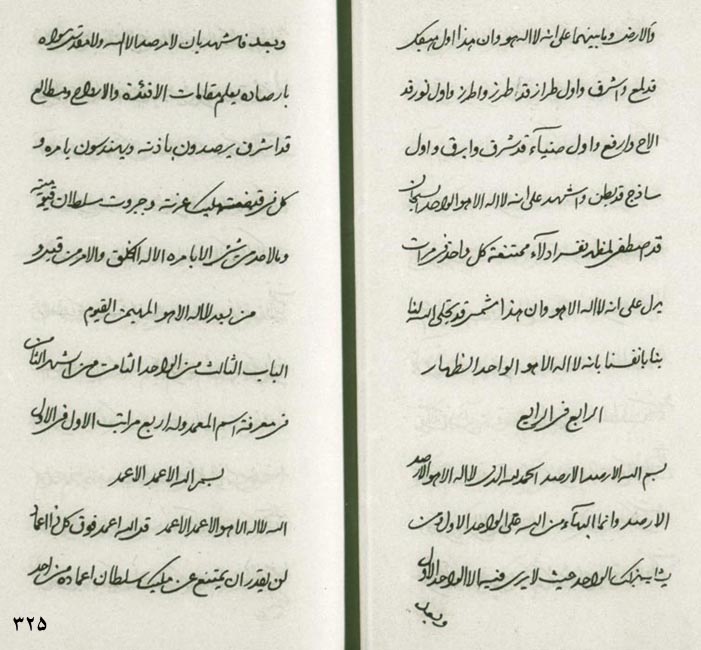 والارض وما بينهما على انه لا اله الا هو وان هذا اول هيكل
قد لمع واشرف واول طراز قد اطرز واطرز واول نور قد
الاح وارفع واول ضياء قد شرق وابرق واول
ساذج قد بطن واشهد على انه لا اله الا هو الواحد السبحان
قد اصطفى لمظهر نفسه ادلاء ممتنعة كل واحد مرات
يدل على انه لا اله الا هو وان هذا شمس قد تجلى الله لنا
بنا بانفسنا بانه لا اله الا هو الواحد الظهار
الرابع فى الرابع
بسم الله الارصد الارصد الحمد لله الذى لا اله الا هو الارصد
الارصد وانما البهاء من الله على الواحد الاول ومن
يشابه ذلك الواحد حيث لا يرى فيه الا الواحد الاول
وبعد
وبعد فاشهد بان لا مرصد الا الله ولا مقدس سواه
بارصاده يعلم مقامات الافئدة والارواح ومطالع
قد اشرق يرصدون باذنه ويقدسون بامره و
كل فى قبضته مليك عزته وجبروت سلطان قيوميته
وما لاحد من شئ الا بامره الا له الخلق والامر من قبل و
من بعد لا اله الا هو المهيمن القيوم
الباب الثالث من الواحد الثامن من الشهر الثامن
فى معرفة اسم المعمد وله اربع مراتب الاول فى الاول
بسم الله الاعمد الاعمد
الله لا اله الا هو الاعمد الاعمد قل الله اعمد فوق كل ذا اعماد
لن يقدر ان يمتنع عن مليك سلطان اعماده من احد
۳۲۵